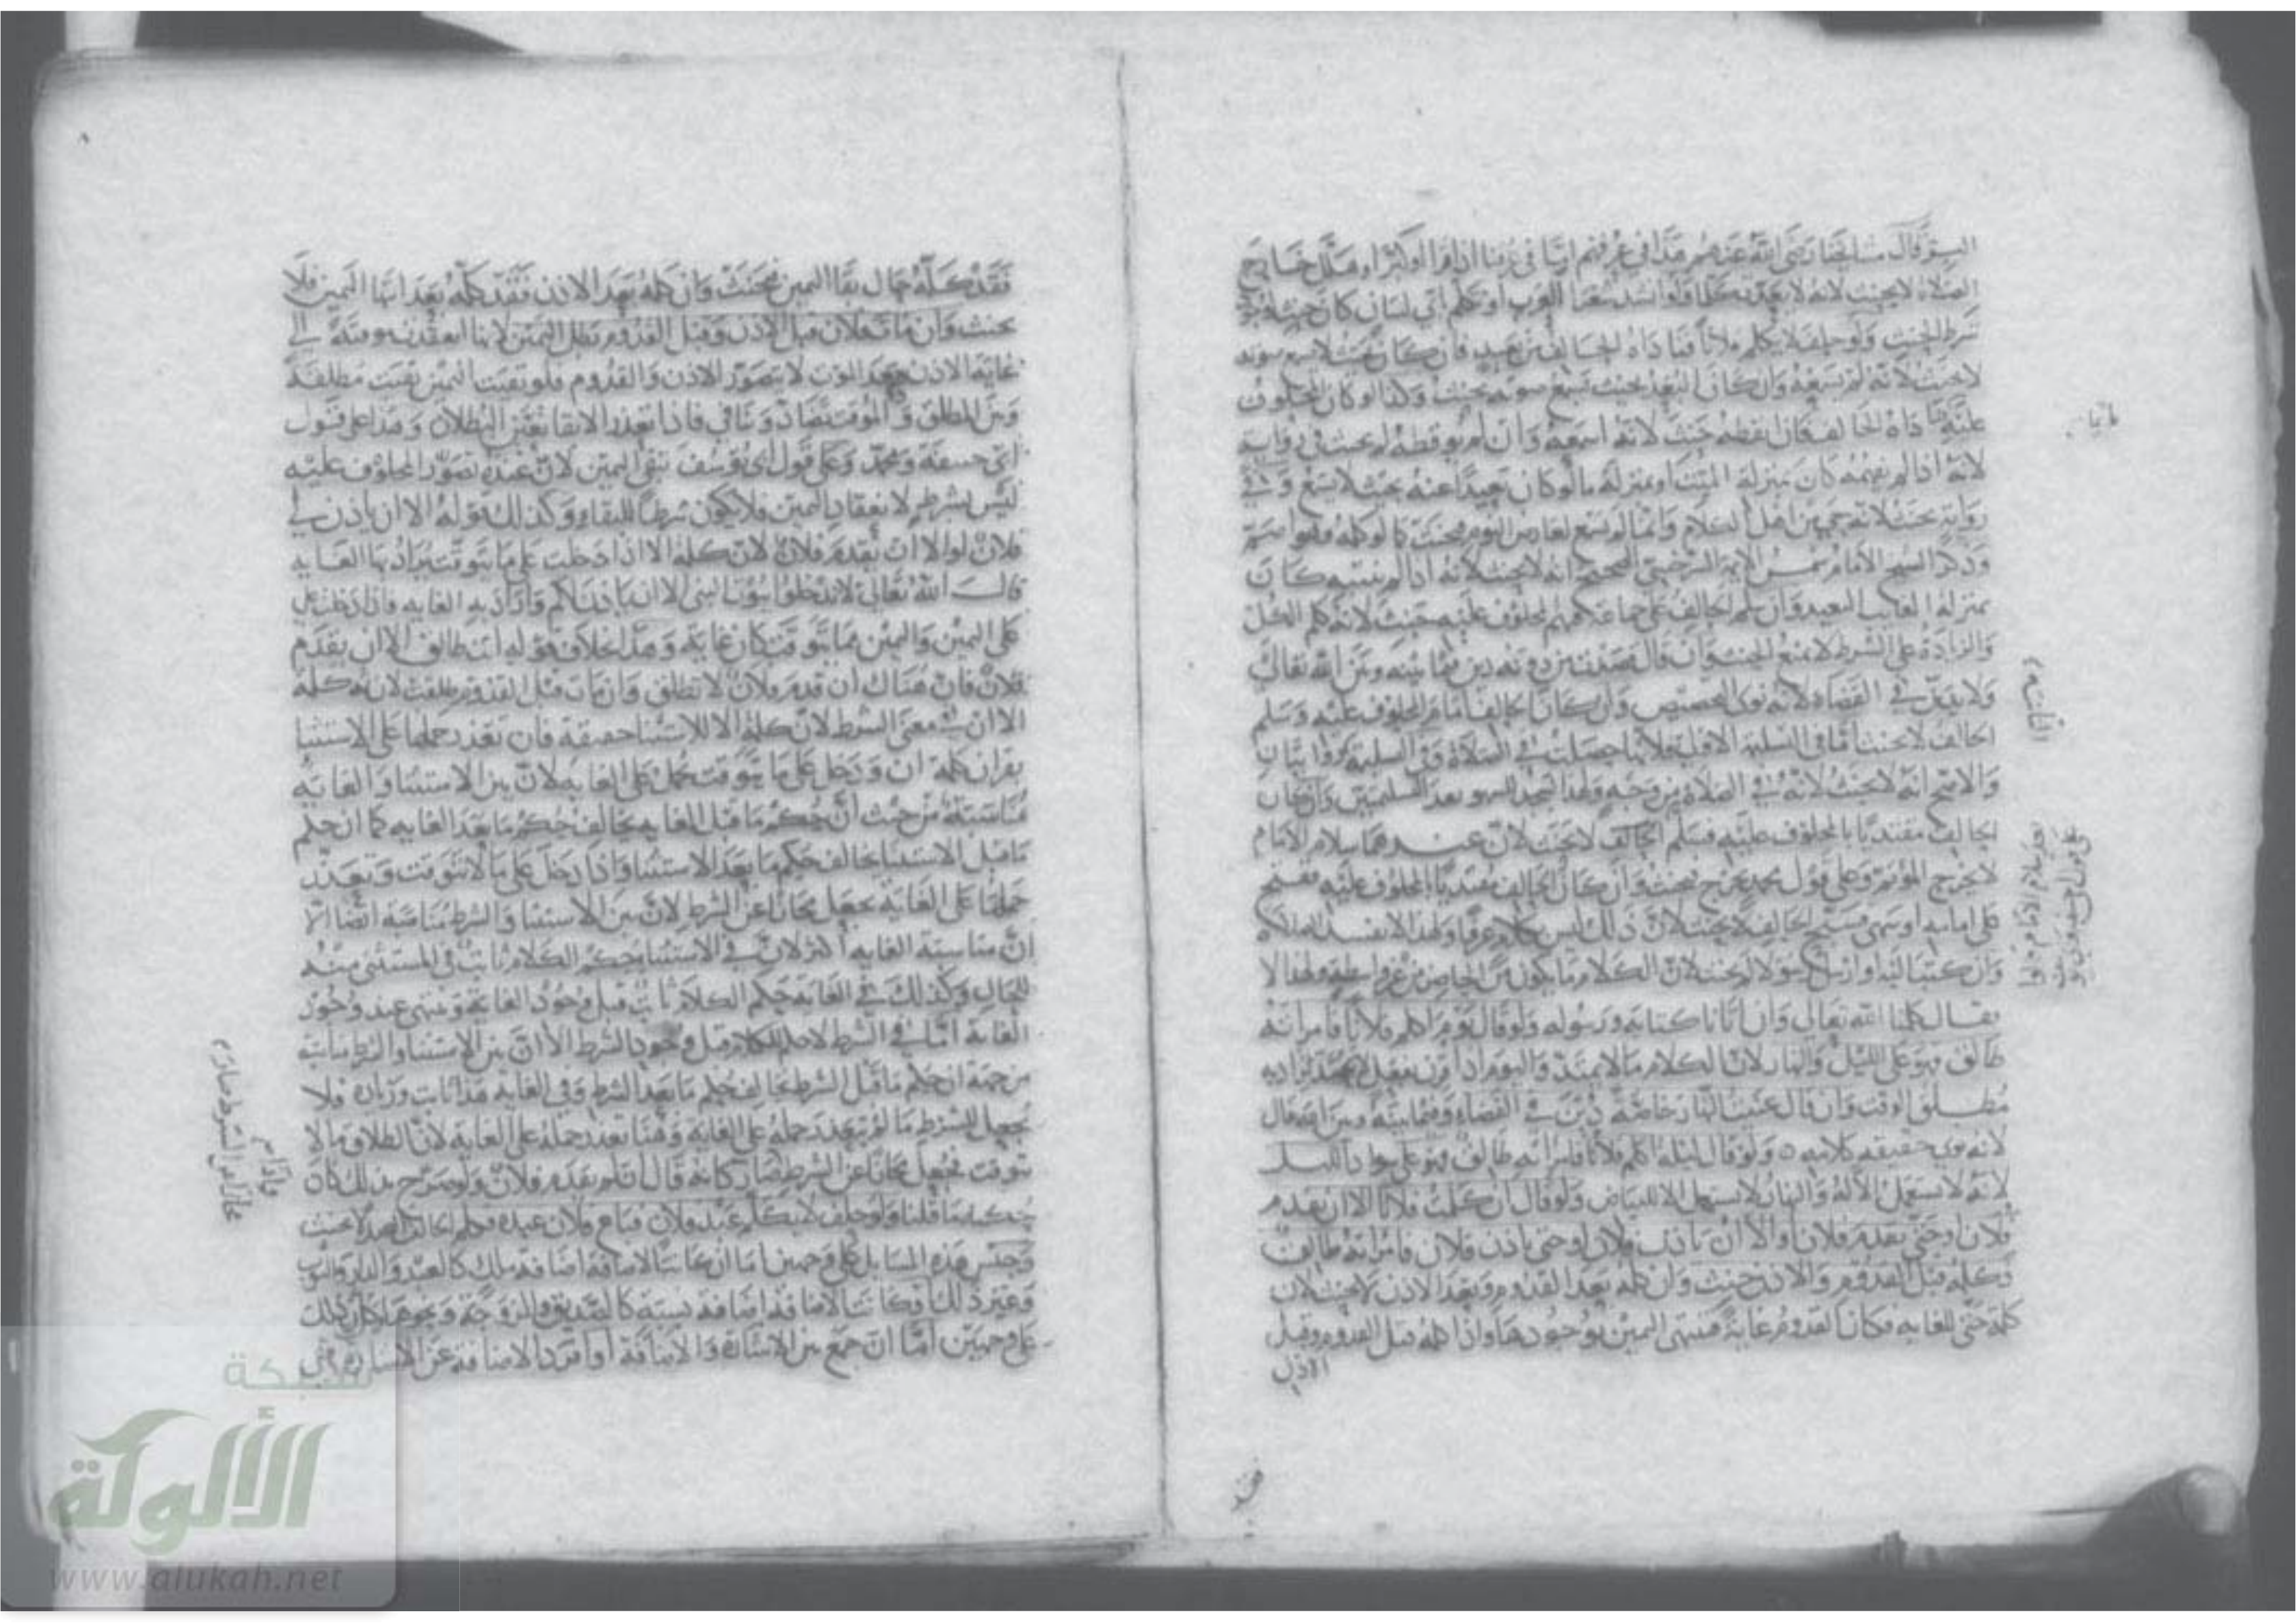 قال مشايخنا رضي الله عنهم هذا في عرفهم اما في عرفنا اذا قرا او كبر او هلل خارج
الصلاة لا يحنث لانه لا يعد متكلما ولو انشد شعرا العرب او تكلم اي لسان كان حنث لوجود
شرط الحنث ولو حلف لا يكلم فلانا فناداه الحالف من بعيد فان كان بحيث لا يسمع صوته
لا يحنث لانه لم يسمعه وان كان البعد بحيث يسمع صوته يحنث وكذا لو كان المحلوف
عليه نائما فناداه الحالف فان ايقظه حنث لانه اسمعه وان لم يوقظه لم يحنث في رواية
لانه اذا لم يفهمه كان بمنزلة الميت او بمنزلة ما لو كان بعيدا عنه بحيث لا يسمع وفي
رواية يحنث لانه جميع من اهل الكلام وانما لم يسمع لعارض النوم فيحنث كما لو كلمه وهو اصم
وذكر الشيخ الامام شمس الائمة السرخسي الصحيح انه لا يحنث لانه اذا لم ينتبه كان
بمنزلة الغائب البعيد وان سلم الحالف على جماعة فيهم المحلوف عليه حنث لانه كلم الكل
والزيادة على الشرط لا تمنع الحنث وان قال قصدتهم دونه دين فيما بينه وبين الله تعالى
ولا يدين في القضاء لانه نوى التخصيص وان كان الحالف اماما والمحلوف عليه وسلم
الحالف لا يحنث اما في التسليمة الاولى فلانها حصلت في الصلاة وفي التسليمة روايتان
والاصح انه لا يحنث لانه في الصلاة من وجه ولهذا يسجد للسهو بعد التسليمتين وان كان
الحالف مقتديا بالمحلوف عليه فسلم الحالف لا يحنث لان عندهما سلام الامام
لا يخرج المؤتم وعلى قول محمد يخرج فيحنث وان كان الحالف مقتديا بالمحلوف عليه ففتح
على امامه او سهى فسبح الحالف لا يحنث لان ذلك ليس بكلام عرفا ولهذا لا تفسد الصلاة
وان كتب اليه او ارسل رسولا لا يحنث لان الكلام ما يكون من غير واسطة ولهذا لا
يقال كلمنا الله تعالى وان اتانا كتابه ورسوله ولو قال يوم اكلم فلانا فامراته
طالق فهو على الليل والنهار لان الكلام مما لا يمتد واليوم اذا قرن بفعل لا يمتد يراد به
مطلق الوقت وان قال عنيت النهار خاصة دين في القضاء وفيما بينه وبين الله تعالى
لانه نوى حقيقة كلامه ولو قال ليلة اكلم فلانا فامراته طالق فهو على سواد الليل
لانه لا يستعمل الا له والنهار لا يستعمل الا للبياض ولو قال ان كلمت فلانا الا ان يقدم
فلان او حتى يقدم فلان او الا ان ياذن فلان او حتى ياذن فلان فامراته طالق
فكلمه قبل القدوم والاذن حنث وان كلمه بعد القدوم وبعد الاذن لا يحنث لان
كلمة حتى للغاية فكان القدوم غاية فتنتهي اليمين بوجودها واذا كلمه قبل القدوم وقبل
الاذن
فقد كلمه حال بقا اليمين فيحنث وان كلمه بعد الاذن فقد كلمه بعد انتها اليمين فلا
يحنث وان مات فلان قبل الاذن وقبل القدوم تبطل اليمين لانها انعقدت موقتة الى
غاية الاذن وبعد الموت لا يتصور الاذن والقدوم فلو بقيت اليمين بقيت مطلقة
وبين المطلق والموقت تضاد وتنافي فاذا تعذر الابقا تعين البطلان وهذا على قول
ابي حنيفة ومحمد وعلى قول ابي يوسف تبقى اليمين لان عنده تصور المحلوف عليه
ليس بشرط لانعقاد اليمين فلا يكون شرطا للبقاء وكذلك قوله الا ان ياذن لي
فلان او الا ان يقدم فلان لان كلمة الا اذا دخلت على ما يتوقت يراد بها الغاية
قال الله تعالى لا تدخلوا بيوت النبي الا ان يؤذن لكم واراد به الغاية فاذا دخلت على
على اليمين واليمين مما يتوقت كان غاية وهذا بخلاف قوله انت طالق الا ان يقدم
فلان فان هناك ان قدم فلان لا تطلق وان مات قبل القدوم طلقت لان كلمة
الا ان في معنى الشرط لان كلمة الا للاستثنا حقيقة فان تعذر حملها على الاستثنا
بقران كلمة ان ودخل على ما يتوقت تحمل على الغاية لان بين الاستثنا والغاية
مناسبة من حيث ان حكم ما قبل الغاية يخالف حكم ما بعد الغاية كما ان حكم
ما قبل الاستثنا يخالف حكم ما بعد الاستثنا واذا دخل على ما لا يتوقت وتعذر
حملها على الغاية يجعل مجازا عن الشرط لان بين الاستثنا والشرط مناسبة ايضا الا
ان مناسبة الغاية اكثر لان في الاستثنا حكم الكلام ثابت في المستثنى منه
للحال وكذلك في الغاية حكم الكلام ثابت قبل وجود الغاية وينتهي عند وجود
الغاية اما في الشرط لا حكم للكلام قبل وجود الشرط الا ان بين الاستثنا والشرط مناسبة
من جهة ان حكم ما قبل الشرط يخالف حكم ما بعد الشرط وفي الغاية هذا ثابت وزيادة فلا
يجعل للشرط ما لم يتعذر حمله على الغاية وهنا تعذر حمله على الغاية لان الطلاق مما لا
يتوقت فجعل مجازا عن الشرط فصار كانه قال ان لم يقدم فلان ولو صرح بذلك كان
حكمه ما قلنا ولو حلف لا يكلم عبد فلان فباع فلان عبده فكلم الحالف العبد لا يحنث
وجنس هذه المسايل على وجهين اما ان كانت الاضافة اضافة ملك كالعبد والدار والثوب
وغير ذلك او كانت الاضافة اضافة نسبة كالصديق والزوجة ونحوهما وكل ذلك
على وجهين اما ان جمع بين الاشارة والاضافة او افرد الاضافة عن الاشارة
شبكة
الألوكة
www.alukah.net